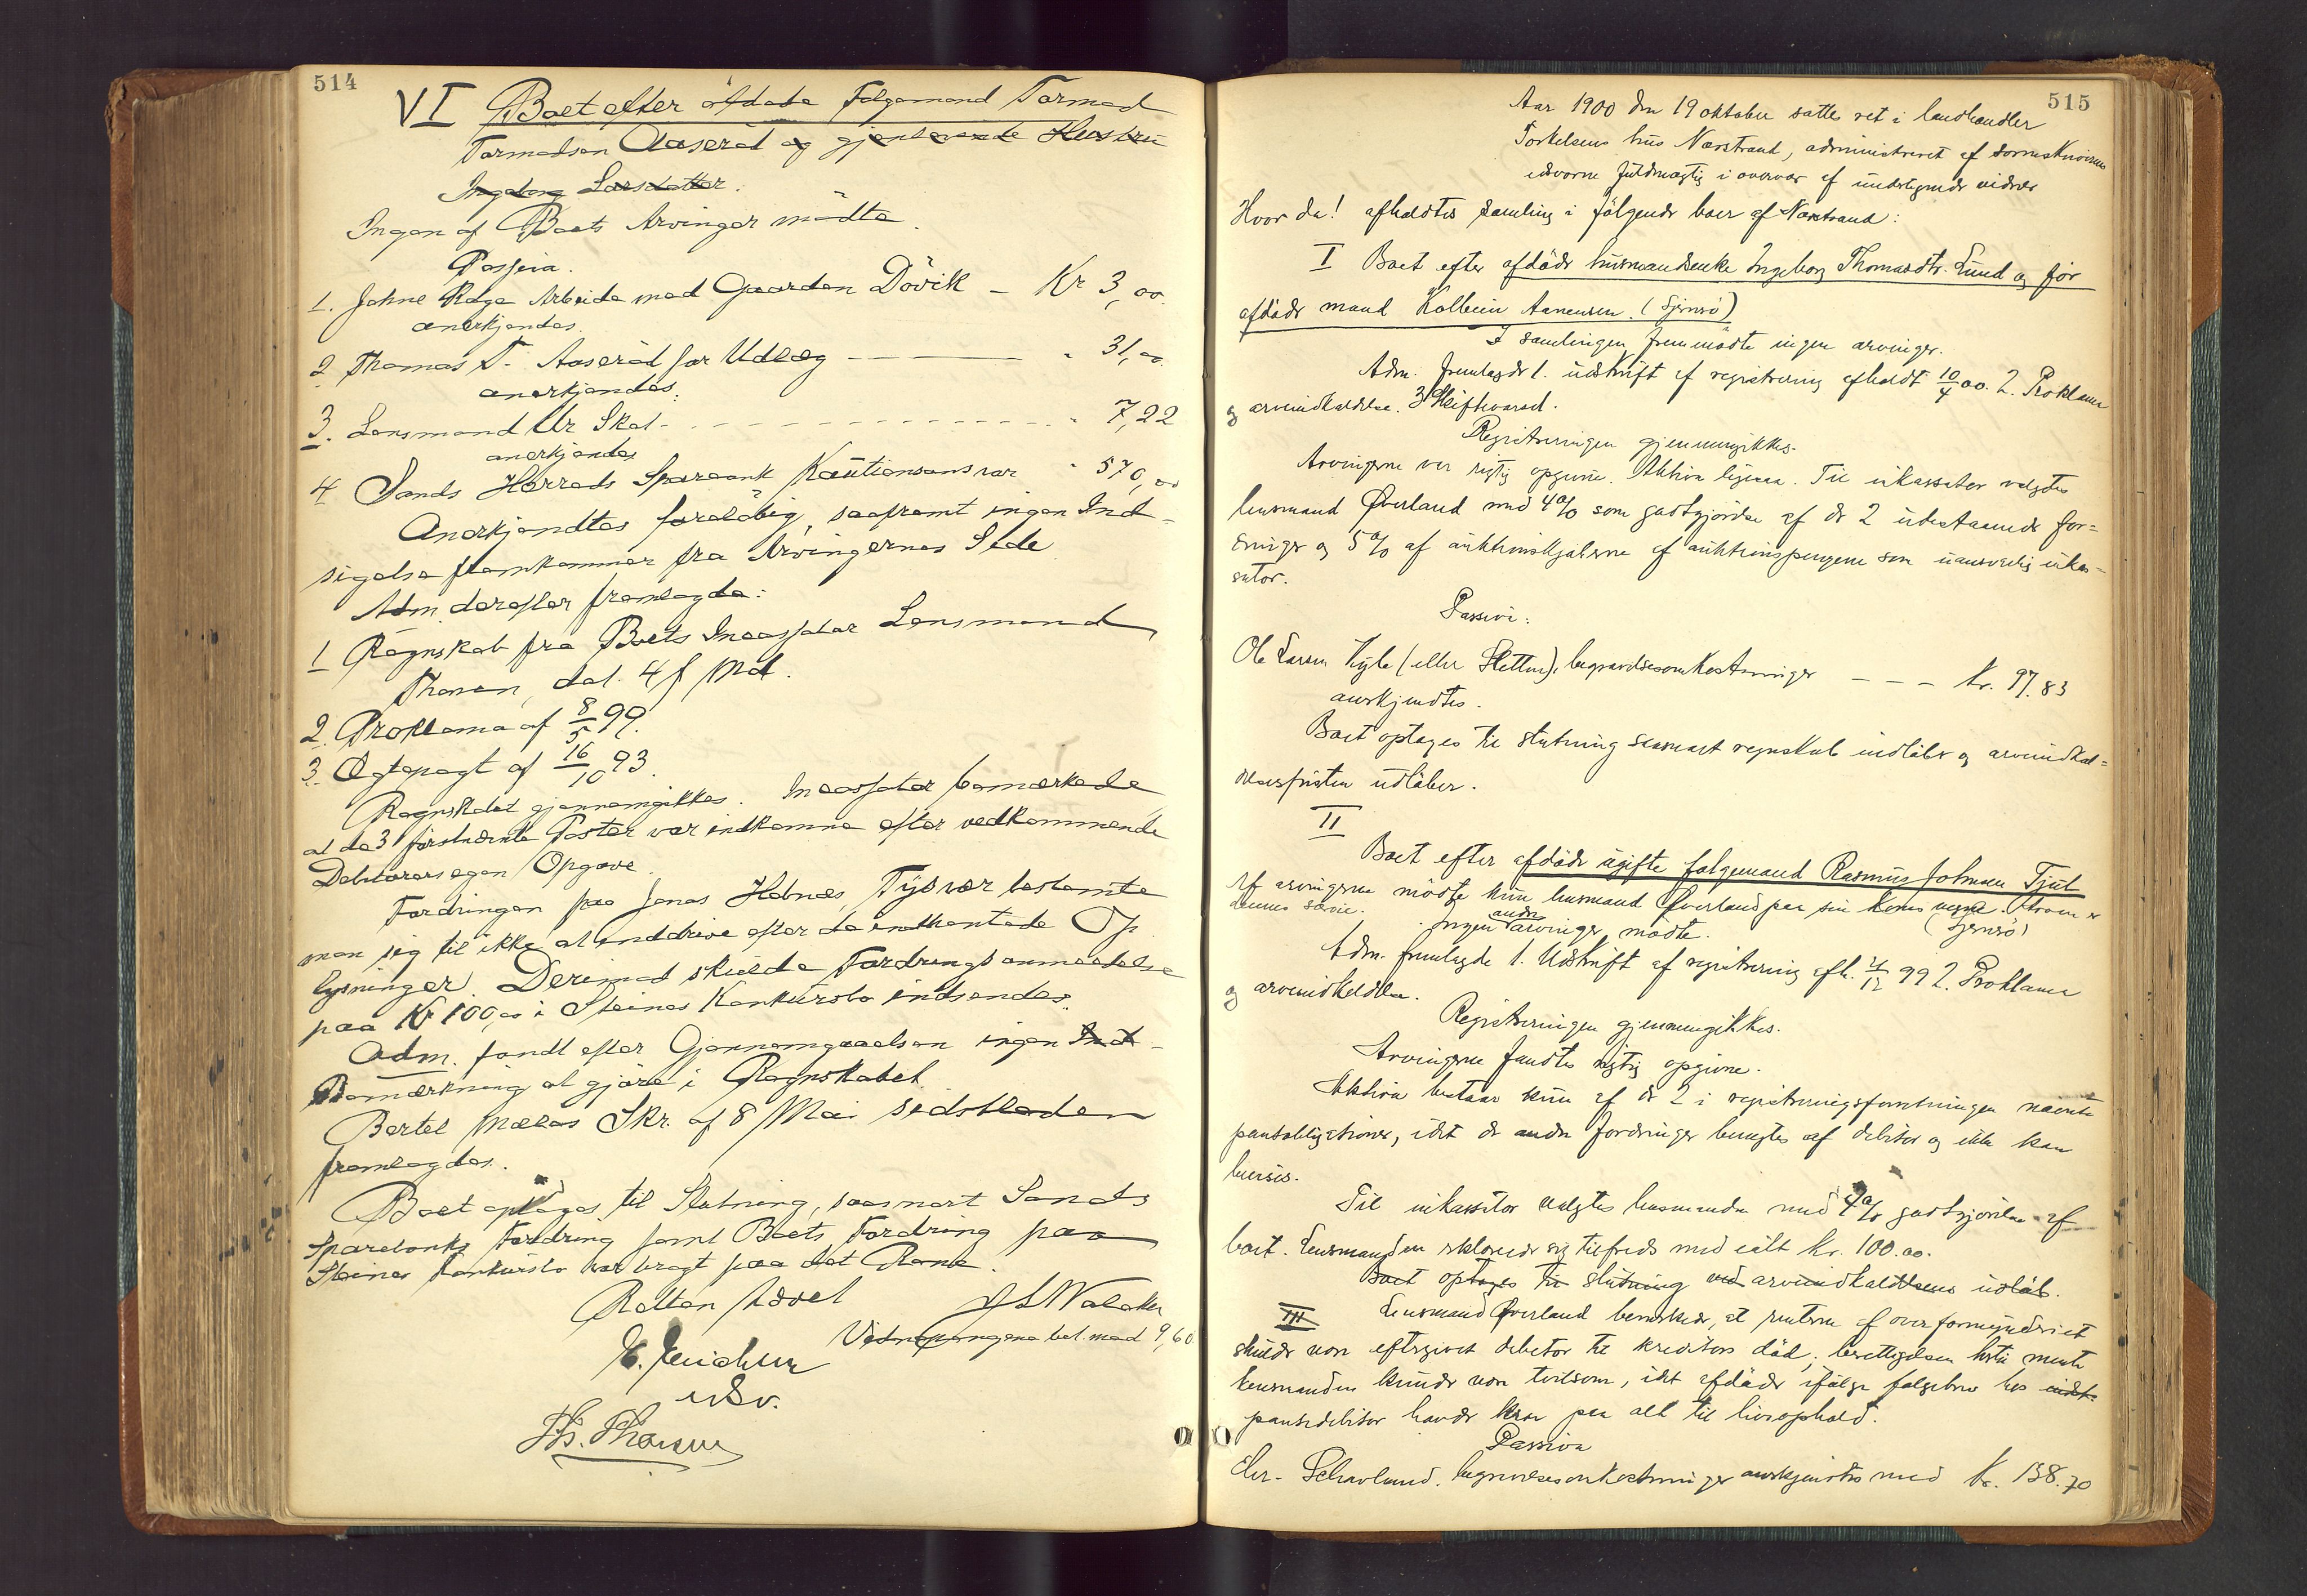 514
VI Boet efter afdøde Følgemand Tormod
Tormodsen Aaseröd og gjenlevende Hustru
Ingeborg Larsdatter.
Ingen af Boets Arvinger mødte.
Passiva.
1. Arbeide med Gaarden Dövik – Kr 3,00.
anerkjendes.
2 Thomas T. Aaseröd for Udlæg — " 31,00
anerkjendes.
3. Lensmand Ur Skat - - - " 7,22
anerkjendes
4 Sands Herreds Sparebank Kautionsansvar " 570,00
Anerkjendtes foreløbig, saafremt ingen Ind-
sigelse fremkommer fra Arvingernes Side
Adm. derefter fremlagde:
1 Regnskab fra Boets Incassator Lensmand
Thorsen, dat. 4 f Md.
2. Proklama af 8/5 99.
3. Ægtepagt af 16/10 93.
Regnskabet gjennemgikkes. Incassator bemærkede
at de 3 førstnævnte Poster var indkomne efter vedkommende
Debitorers egen Opgave.
Fordringen paa Jonas Hebnes, Tysvær bestemte
man sig til ikke at inddrive efter de indhentede Op
lysninger. Derimod skulde Fordringsanmeldelse
paa Kr 100,00 i Steines Konkursbo indsendes.
Adm. fandt efter Gjennemgaaelsen ingen Ind-
Bemærkning at gjøre i Regnskabet
Bertel Mælas Skr. af 8 Mai sidstleden
fremlagdes.
Boet optages til Slutning, saasnart Sands
Sparebanks Fordring samt Boets Fordring paa
Steines Konkursbo var bragt paa det Rene.
Retten hævet
Vidnepengene bet. med 9,60
Ths. Thorsen
515
Aar 1900 den 19 oktober sattes ret i landhandler
Torkelsens hus Nærstrand, administreret af sorenskriverens
edsvorne fuldmægtig i overvær af undertegnede vidner
Hvor da! afholdtes samling i følgende boer af Nærstrand:
I Boet efter afdøde husmandsenke Ingeborg Thomasdtr. Lund og før
afdøde mand Kolbein Aanensen. (Sjernerø)
I samlingen fremmødte ingen arvinger.
Adm. fremlagde 1. udskrift af registrering afholdt 10/4 00. 2. Proklama
og arveindkaldelse. 3 Skiftevarsel.
Registreringen gjennemgikkes.
Arvingerne var rigtig opgivne. Aktiva ligesaa. Til inkassator valgtes
lensmand Øverland med 4% som godtgjørelse af de 2 udestaaende for=
dringer og 5% af auktionskjøberne af auktionspengene som uansvarlig inkas=
sator.
Passiva:
Ole Larsen (eller Sletten), begravelsesomkostninger – – – kr. 97.83
anerkjendtes.
Boet optages til slutning saasnart regnskab indløber og arveindkal=
delsesfristen udløber.
II
Boet efter afdøde ugifte følgemand Rasmus Johnsen Tjul
Af arvingerne mødte kun lensmand Øverland paa sin kones vegne.
(Sjernerø)
Ingen andre arvinger mødte.
Adm. fremlagde 1. Udskrift af registrering afh. 4/12 99 2. Proklama
og arveindkaldelse.
Registreringen gjennemgikkes.
Arvingerne fandtes rigtig opgivne.
Aktiva bestaar kun af de 2 i registreringsforretningen nævnte
pantobligationer, idet de andre fordringer benegtes af debitor og ikke kan
bevises.
Til inkassator valgtes lensmanden med 4% godtgjørelse af
boet. Lensmanden erklærede sig tilfreds med ialt kr. 100.00.
Boet optages til slutning ved arveindkaldelsens udløb.
III Lensmand Øverland bemerkede, at renterne af overformynderiet
skulde være eftergivet debitor til kreditors død; berettigelsen hertil mente
lensmanden kunde være tvilsom, idet afdøde ifølge følgebrev hos
pantedebitor havde krav paa alt til livsophold.
Passiva
Chr. Schavland. begravelsesomkostninger anerkjendtes med kr. 138.70